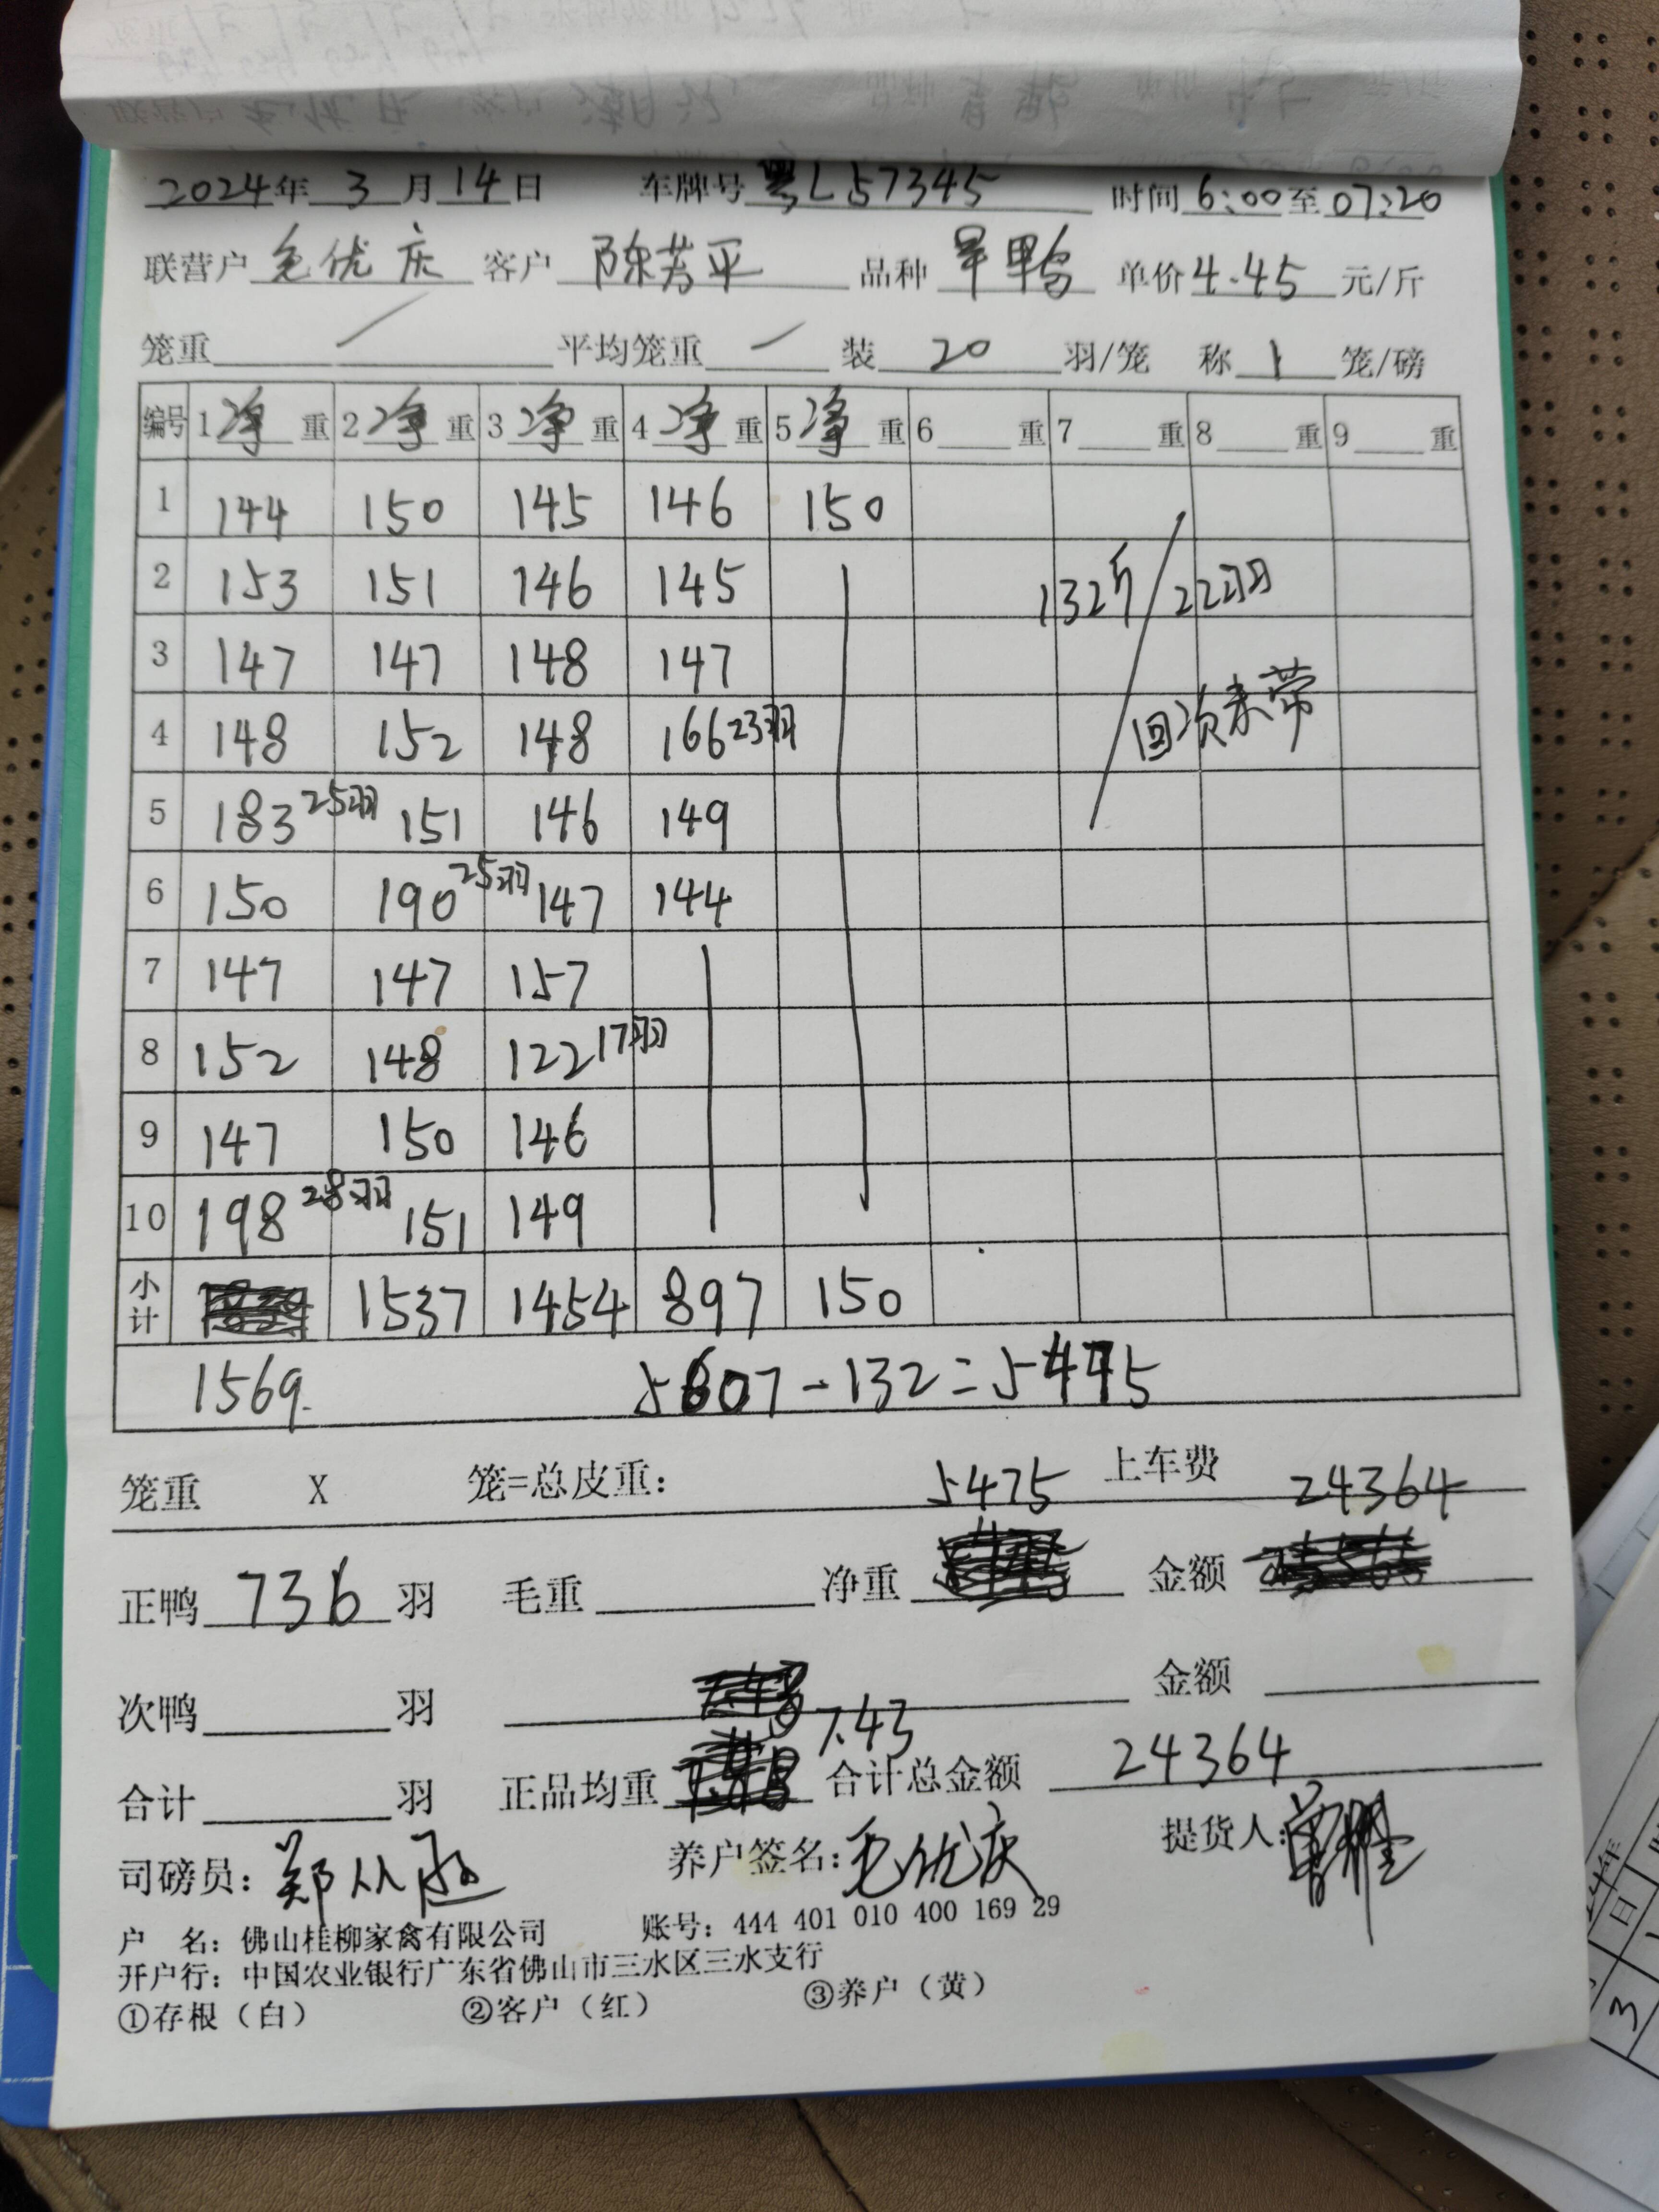 2024年 3 月 14 日 车牌号 粤L57345 时间 6:00 至 07:20
联营户 毛优庆 客户 陈芳平 品种 旱鸭 单价 4.45 元/斤
笼重 / 平均笼重 / 装 20 羽/笼 称 1 笼/磅
编号 1 净 重 2 净 重 3 净 重 4 净 重 5 净 重 6 重 7 重 8 重 9 重
1 144 150 145 146 150
2 153 151 146 145 132斤/22羽
3 147 147 148 147
4 148 152 148 166 23羽 回次未带
5 183 25羽 151 146 149
6 150 190 25羽 147 144
7 147 147 157
8 152 148 122 17羽
9 147 150 146
10 198 28羽 151 149
小计 1537 1454 897 150
1569. 5607-132=5475
笼重 X 笼=总皮重: 5475 上车费 24364
正鸭 736 羽 毛重 净重 金额
次鸭 羽 金额
合计 羽 正品均重 7.43 合计总金额 24364
司磅员: 郑从 养户签名: 毛优庆 提货人:
户 名: 佛山桂柳家禽有限公司 账号: 444 401 010 400 169 29
开户行: 中国农业银行广东省佛山市三水区三水支行
①存根（白） ②客户（红） ③养户（黄）